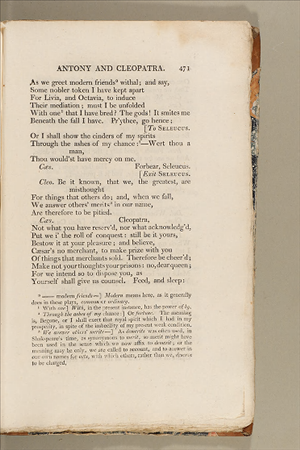 ANTONY AND CLEOPATRA. 471
As we greet modern friends⁹ withal; and say,
Some nobler token I have kept apart
For Livia, and Octavia, to induce
Their mediation; must I be unfolded
With one¹ that I have bred? The gods! It smites me
Beneath the fall I have. Pr'ythee, go hence;
[To SELEUCUS.
Or I shall show the cinders of my spirits
Through the ashes of my chance:²—Wert thou a
man,
Thou would'st have mercy on me.
Cæs. Forbear, Seleucus.
[Exit SELEUCUS.
Cleo. Be it known, that we, the greatest, are
misthought
For things that others do; and, when we fall,
We answer others' merits³ in our name,
Are therefore to be pitied.
Cæs. Cleopatra,
Not what you have reserv'd, nor what acknowledg'd,
Put we i' the roll of conquest: still be it yours,
Bestow it at your pleasure; and believe,
Cæsar's no merchant, to make prize with you
Of things that merchants sold. Therefore be cheer'd;
Make not your thoughts your prisons: no, dear queen;
For we intend so to dispose you, as
Yourself shall give us counsel. Feed, and sleep:
⁹ —— modern friends—] Modern means here, as it generally
does in these plays, common or ordinary.
¹ With one—] With, in the present instance, has the power of by.
² Through the ashes of my chance:] Or fortune. The meaning
is, Begone, or I shall exert that royal spirit which I had in my
prosperity, in spite of the imbecility of my present weak condition.
³ We answer others' merits—] As demerits was often used, in
Shakspeare's time, as synonymous to merit, so merit might have
been used in the sense which we now affix to demerit; or the
meaning may be only, we are called to account, and to answer in
our own names for acts, with which others, rather than we, deserve
to be charged.